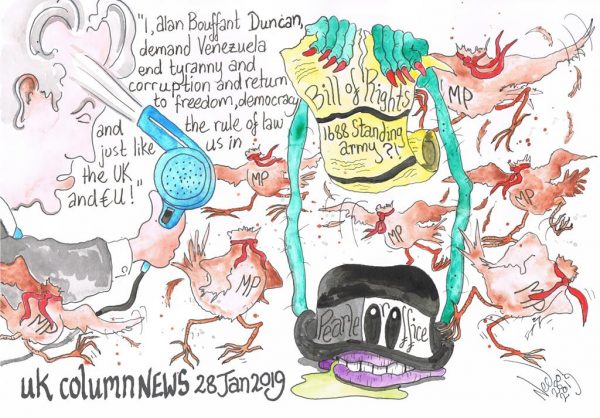 "I, alan Bouffant Duncan,
demand Venezuela
end tyranny and
corruption and return
to freedom, democracy
and the rule of law
just like us in
the UK
and €U!"
Bill of Rights
1688 Standing
army?!
MP
MP
MP
MP
MP
MP
MP
MP
Pearle or office
uk column NEWS 28 Jan 2019